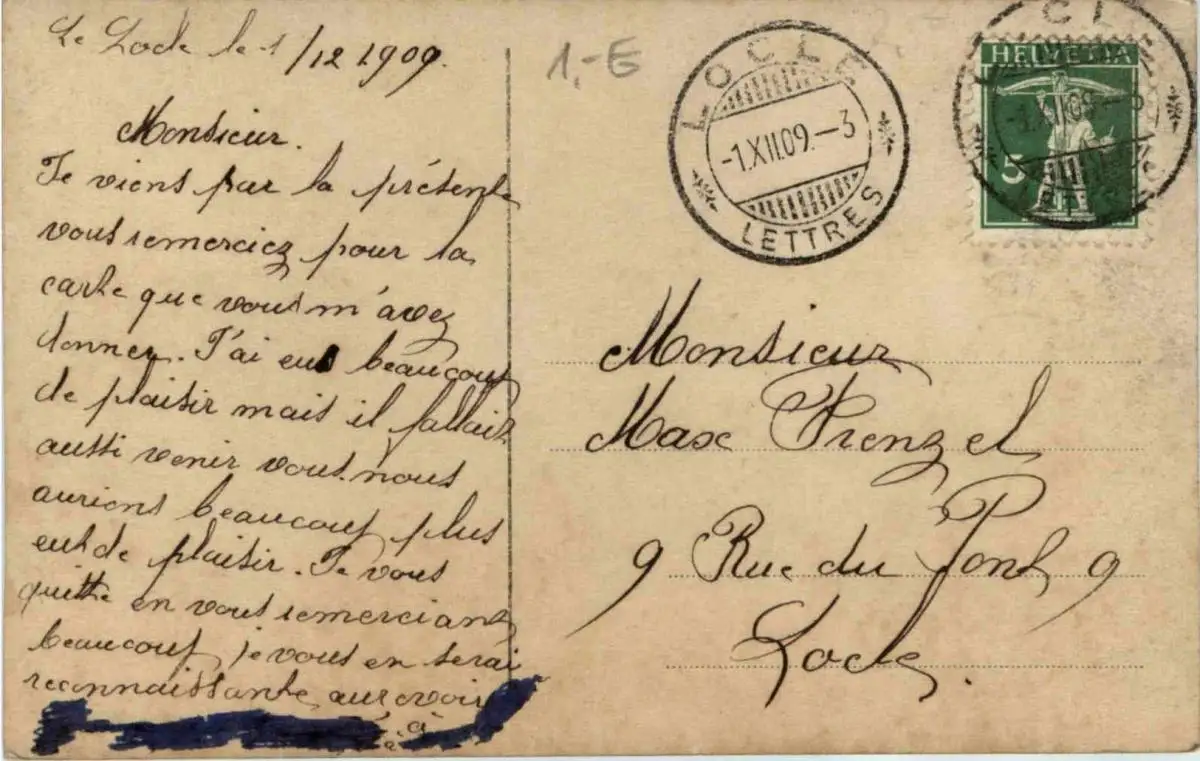 Le Locle le 1/12 1909.
Monsieur.
Je viens par la présente
vous remerciez pour la
carte que vous m'avez
donner. J'ai eus beaucoup
de plaisir mais il fallait
aussi venir vous. nous
aurions beaucoup plus
eut de plaisir. Je vous
quitte en vous remerciant
beaucoup, je vous en serai
reconnaissante, aurevoir
à
1,-E
LOCLE
-1.XII.09.-3
LETTRES
HELVETIA
5
CL
-1.XII.09.-3
Monsieur
Max Frenzel
9 Rue du Pont 9
Locle.